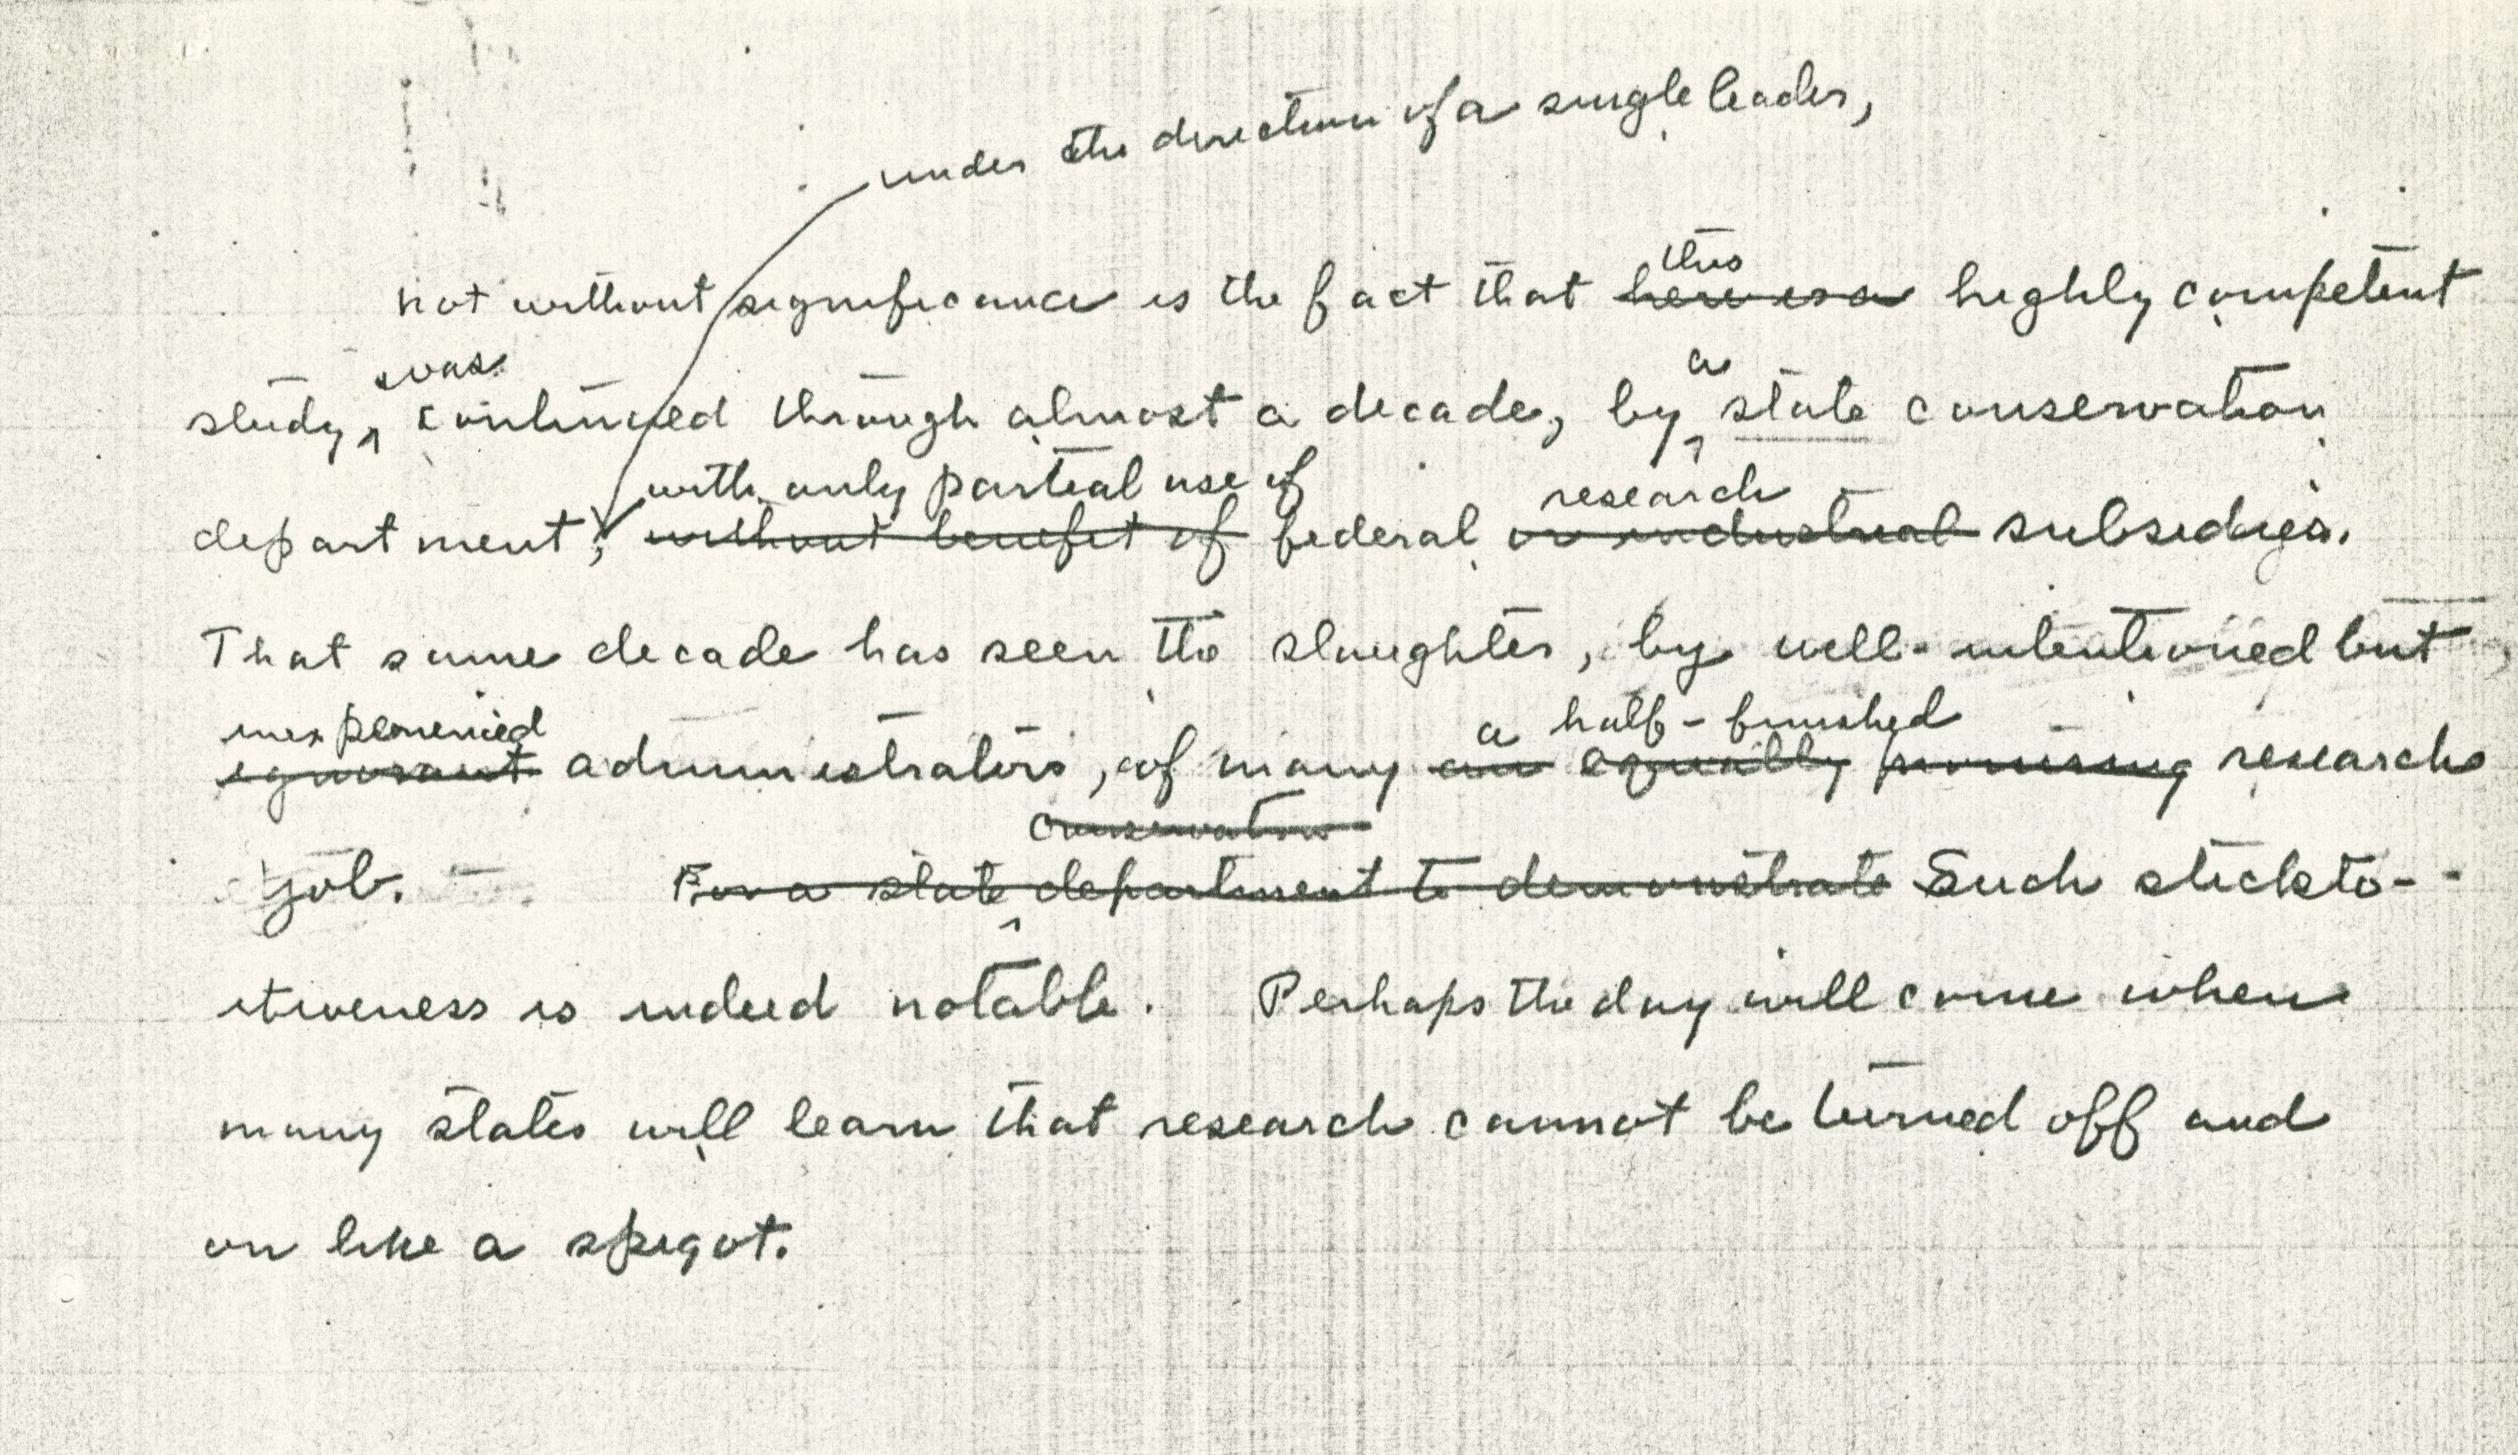 under the direction of a single leader,
this
not without significance is the fact that here is a highly competent
was a
study, continued through almost a decade, by state conservation
with only partial use of research
department, without benefit of federal or industrial subsidies.
That same decade has seen the slaughter, by well-intentioned but
inexperienced a half-finished
ignorant administrators, of many an equally promising research
conservation
job. For a state department to demonstrate Such stickto-
itiveness is indeed notable. Perhaps the day will come when
many states will learn that research cannot be turned off and
on like a spigot.